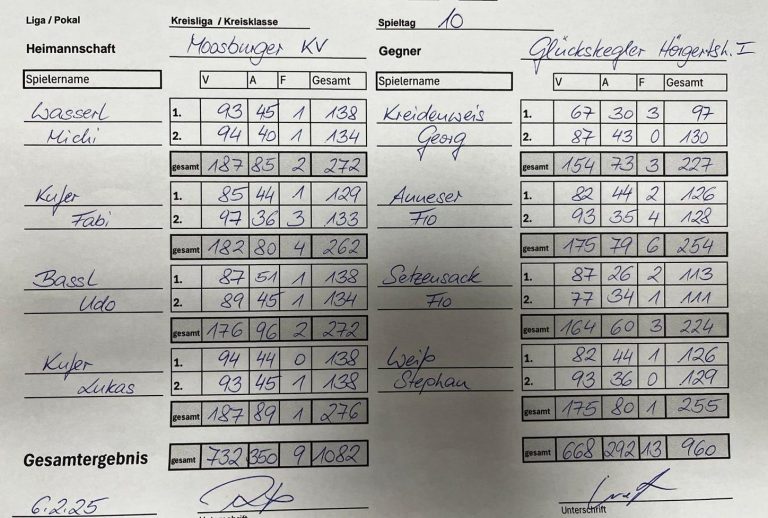 Liga / Pokal Kreisliga / Kreisklasse Spieltag 10
Heimannschaft Moosburger KV Gegner Glückskegler Hörgertsh. I
Spielername V A F Gesamt Spielername V A F Gesamt
Wasserl 1. 93 45 1 138 Kreidenweis 1. 67 30 3 97
Michi 2. 94 40 1 134 Georg 2. 87 43 0 130
gesamt 187 85 2 272 gesamt 154 73 3 227
Kufer 1. 85 44 1 129 Anneser 1. 82 44 2 126
Fabi 2. 97 36 3 133 Flo 2. 93 35 4 128
gesamt 182 80 4 262 gesamt 175 79 6 254
Bassl 1. 87 51 1 138 Setzensack 1. 87 26 2 113
Udo 2. 89 45 1 134 Flo 2. 77 34 1 111
gesamt 176 96 2 272 gesamt 164 60 3 224
Kufer 1. 94 44 0 138 Weiß 1. 82 44 1 126
Lukas 2. 93 45 1 138 Stephan 2. 93 36 0 129
gesamt 187 89 1 276 gesamt 175 80 1 255
Gesamtergebnis gesamt 732 350 9 1082 gesamt 668 292 13 960
6.2.25
Unterschrift Unterschrift